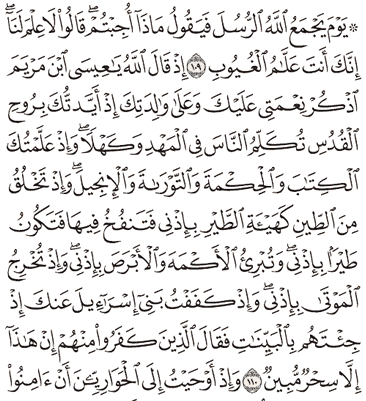 ۞ يَوْمَ يَجْمَعُ اللَّهُ الرُّسُلَ فَيَقُولُ مَاذَا أُجِبْتُمْ ۖ قَالُوا لَا عِلْمَ لَنَا ۖ
إِنَّكَ أَنتَ عَلَّامُ الْغُيُوبِ ١٠٩ إِذْ قَالَ اللَّهُ يَاعِيسَى ابْنَ مَرْيَمَ
اذْكُرْ نِعْمَتِي عَلَيْكَ وَعَلَىٰ وَالِدَتِكَ إِذْ أَيَّدتُّكَ بِرُوحِ
الْقُدُسِ تُكَلِّمُ النَّاسَ فِي الْمَهْدِ وَكَهْلًا ۖ وَإِذْ عَلَّمْتُكَ
الْكِتَابَ وَالْحِكْمَةَ وَالتَّوْرَىٰةَ وَالْإِنجِيلَ ۖ وَإِذْ تَخْلُقُ
مِنَ الطِّينِ كَهَيْئَةِ الطَّيْرِ بِإِذْنِي فَتَنفُخُ فِيهَا فَتَكُونُ
طَيْرًا بِإِذْنِي ۖ وَتُبْرِئُ الْأَكْمَهَ وَالْأَبْرَصَ بِإِذْنِي ۖ وَإِذْ تُخْرِجُ
الْمَوْتَىٰ بِإِذْنِي ۖ وَإِذْ كَفَفْتُ بَنِي إِسْرَاءِيلَ عَنكَ إِذْ
جِئْتَهُم بِالْبَيِّنَاتِ فَقَالَ الَّذِينَ كَفَرُوا مِنْهُمْ إِنْ هَٰذَا
إِلَّا سِحْرٌ مُّبِينٌ ١١٠ وَإِذْ أَوْحَيْتُ إِلَى الْحَوَارِيِّنَ أَنْ ءَامِنُوا